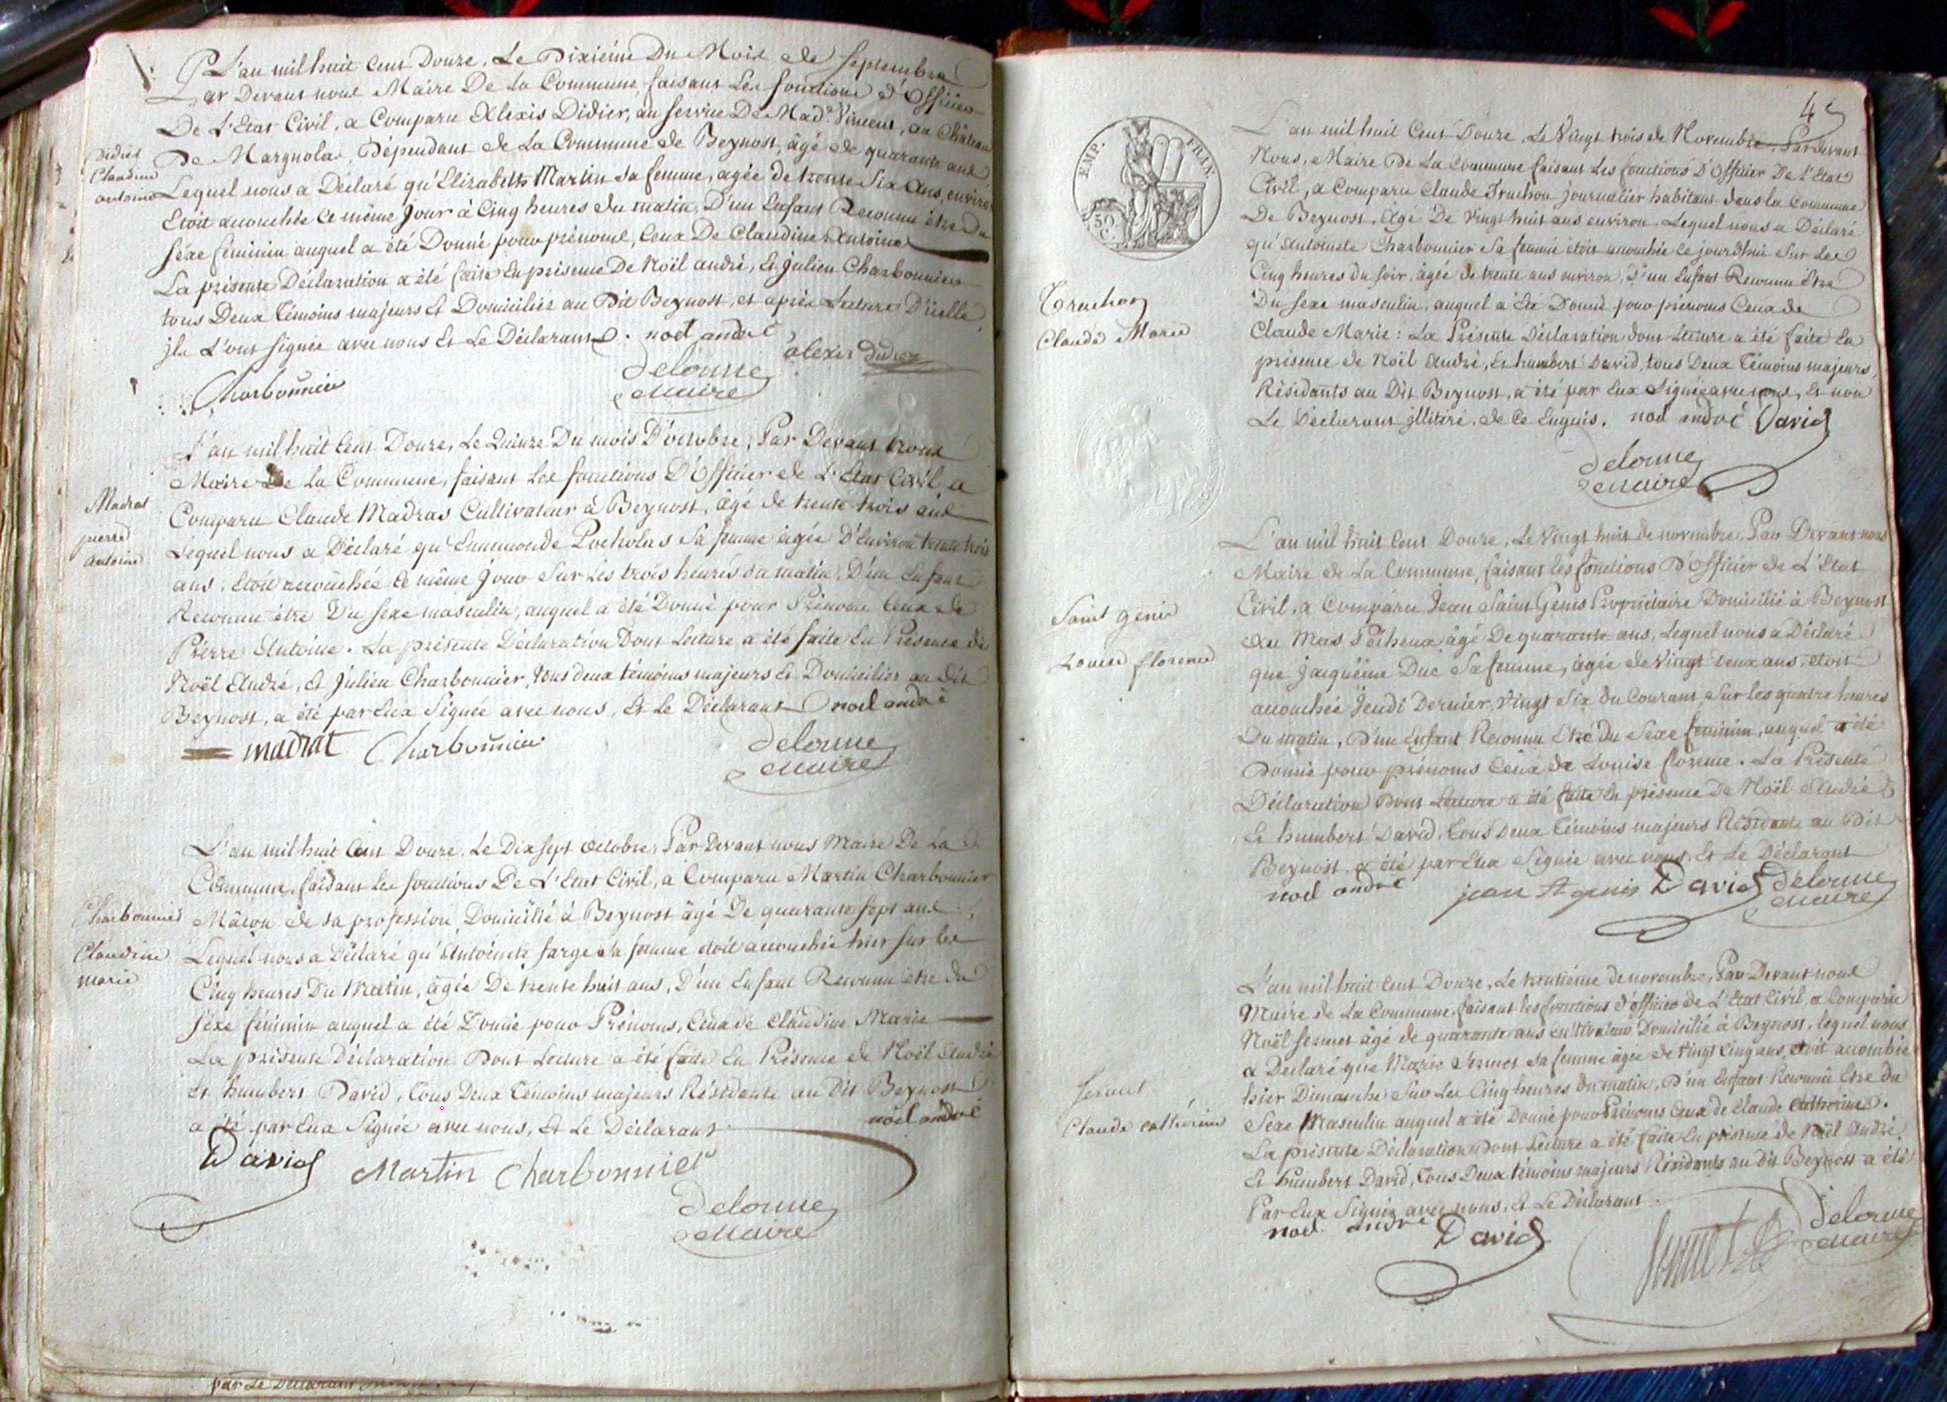 L'an mil huit Cent Douze, Le Dixiéme Du Mois de Septembre
Par Devant nous Maire De La Commune, faisant Les fonctions d'Officier
De L'Etat Civil, a Comparu Alexis Didier, au service De Mad.e Vincent, au Château
De Margnolas, Dépendant de La Commune de Beynost, âgé de quarante ans
Lequel nous a Déclaré qu'Elizabeth Martin sa femme, agée de trente Six ans, environ
Etoit accouchée Ce même Jour à Cinq heures du matin, D'un Enfant Reconnu être Du
séxe féminin auquel a été Donné pour prénoms, Ceux De Claudine Antoine
La présente Déclaration a été faite En présence De Noël andré, Et Julien Charbonnier
tous Deux Témoins majeurs Et Domiciliés au Dit Beynost, et après Lecture D'icelle
ils L'ont signée avec nous Et Le Déclarant. noel andré
alexis didier
Charbonnier
Delorme
Maire
Didier
Claudine
antoine
L'an mil huit Cent Douze, Le Quinze Du mois D'octobre, Par Devant nous
Maire De La Commune, faisant Les fonctions D'Officier de L'Etat Civil, a
Comparu Claude Madras Cultivateur à Beynost, âgé de trente trois ans
Lequel nous a Déclaré qu'Ennemonde Pocholas Sa femme agée D'Environ trente trois
ans, Etoit accouchée Ce même Jour Sur Les trois heures du matin, D'un Enfant
Reconnu être Du sexe masculin, auquel a été Donné pour Prénoms Ceux de
Pierre Antoine. La présente Déclaration Dont Lecture a été faite En Présence de
Noël André, Et Julien Charbonnier, tous deux témoins majeurs Et Domiciliés au dit
Beynost, a été par Eux Signée avec nous, Et Le Déclarant noel andré
madrat Charbonnier
Delorme
Maire
Madras
pierre
antoine
L'an mil huit Cent Douze, Le Dix sept Octobre, Par Devant nous Maire De La
Commune, faisant Les fonctions De L'Etat Civil, a Comparu Martin Charbonnier
Mâcon de sa profession, Domicilié à Beynost âgé De quarante sept ans
Lequel nous a Déclaré qu'Antoinete farge sa femme étoit accouchée hier sur les
Cinq heures Du Matin, agée De trente huit ans, D'un Enfant Reconnu être du
séxe féminin auquel a été Donné pour Prénoms, Ceux de Claudine Marie
La présente Déclaration Dont Lecture a été faite En Présence de Noël André
Et humbert David, Tous Deux Témoins majeurs Résidents au Dit Beynost
a été par Eux Signée avec nous, Et Le Déclarant noël andré
David Martin Charbonnier
Delorme
Maire
Charbonnier
Claudine
marie
par Le Déclarant
4e
EMP. FRAN.
50 C.
L'an mil huit Cent Douze, Le Vingt trois de Novembre, Pardevant
Nous, Maire De La Commune faisant Les fonctions D'Officier De L'Etat
Civil, a Comparu Claude Truchon journalier habitant dans la Commune
De Beynost, âgé De Vingt huit ans environ, Lequel nous a Déclaré
qu'Antoinete Charbonnier Sa femme étoit accouchée ce jourd'hui Sur Les
Cinq heures du Soir, âgée de trente ans environ, d'un Enfant Reconnu Etre
Du sexe masculin, auquel a Eté Donné pour prénoms Ceux de
Claude Marie: La Présente Déclaration dont Lecture a été faite En
présence de Noël André, Et humbert David, tous Deux Témoins majeurs
Résidants au Dit Beynost, a été par Eux Signée avec nous, Et non
Le Déclarant illitéré, de Ce Enquis. noel andré David
Delorme
Maire
Truchon
Claude Marie
L'an mil huit Cent Douze, Le Vingt huit de novembre, Par Devant nous
Maire de La Commune, faisant les fonctions D'Officier de L'Etat
Civil, a Comparu Jean Saint Genis Propriétaire Domicilié à Beynost
au Mas Pêtheux âgé De quarante ans, Lequel nous a Déclaré
que Jacqueime Duc Sa femme, âgée de Vingt deux ans, étoit
accouchée Jeudi Dernier, Vingt Six du Courant, Sur Les quatre heures
Du matin, D'un Enfant Reconnu Etre du Séxe féminin, auquel a été
Donné pour prénoms Ceux de Louise florence. La Présente
Déclaration Dont Lecture a été faite En présence De Noël André
Et humbert David, Tous Deux Témoins majeurs Résidants au Dit
Beynost, a été par Eux Signée avec nous, Et Le Déclarant
noel andré jean st genis David Delorme
Maire
Saint genis
Louise florence
L'an mil huit Cent Douze, Le trentième de novembre, Par Devant nous
Maire de La Commune, faisant les fonctions d'officier de L'Etat Civil, a Comparu
Noël Sermet âgé de quarante ans Cultivateur Domicilié à Beynost, lequel nous
a Déclaré que Marie sa femme âgée de Vingt Cinq ans, étoit accouchée
hier Dimanche Sur Les Cinq heures Du matin, D'un Enfant Reconnu Etre du
Sexe Masculin auquel a été Donné pour Prénoms Ceux de Claude Catherine.
La présente Déclaration Dont Lecture a été faite En présence de Noël André
Et humbert David, Tous Deux témoins majeurs Résidants au Dit Beynost a été
Par Eux Signée avec nous, Et Le Déclarant
noel andré David Sermet Delorme
Maire
Sermet
Claude catherine